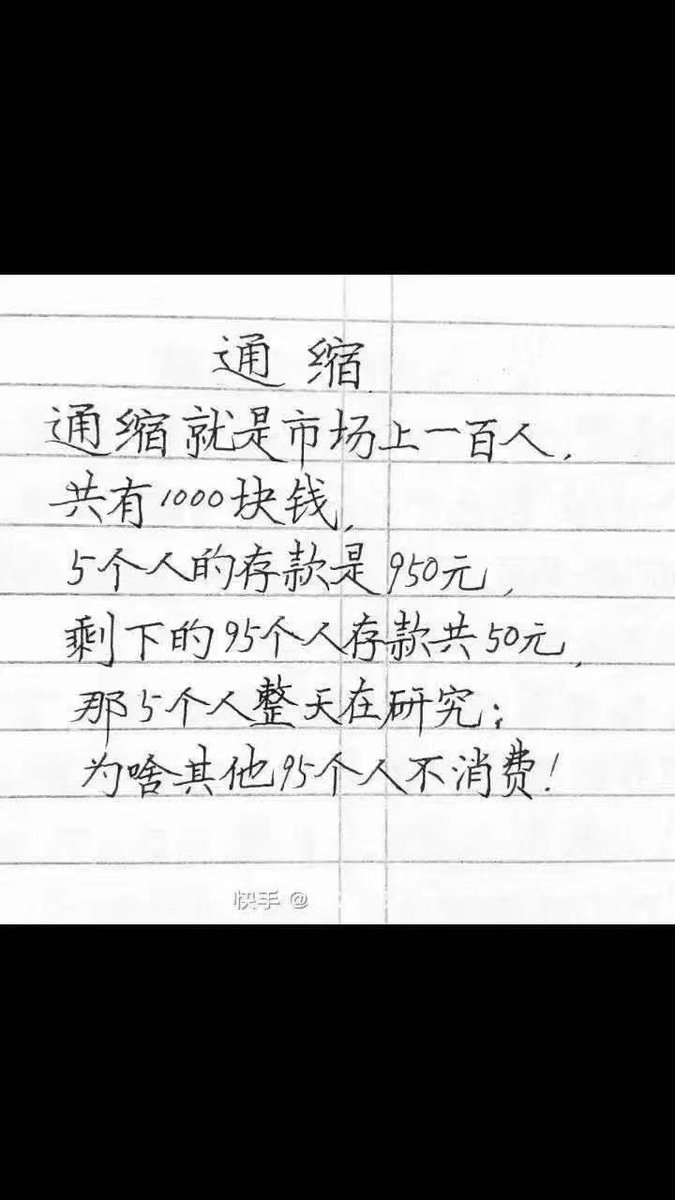 通缩
通缩就是市场上一百人,
共有1000块钱,
5个人的存款是950元,
剩下的95个人存款共50元,
那5个人整天在研究:
为啥其他95个人不消费!
快手 @